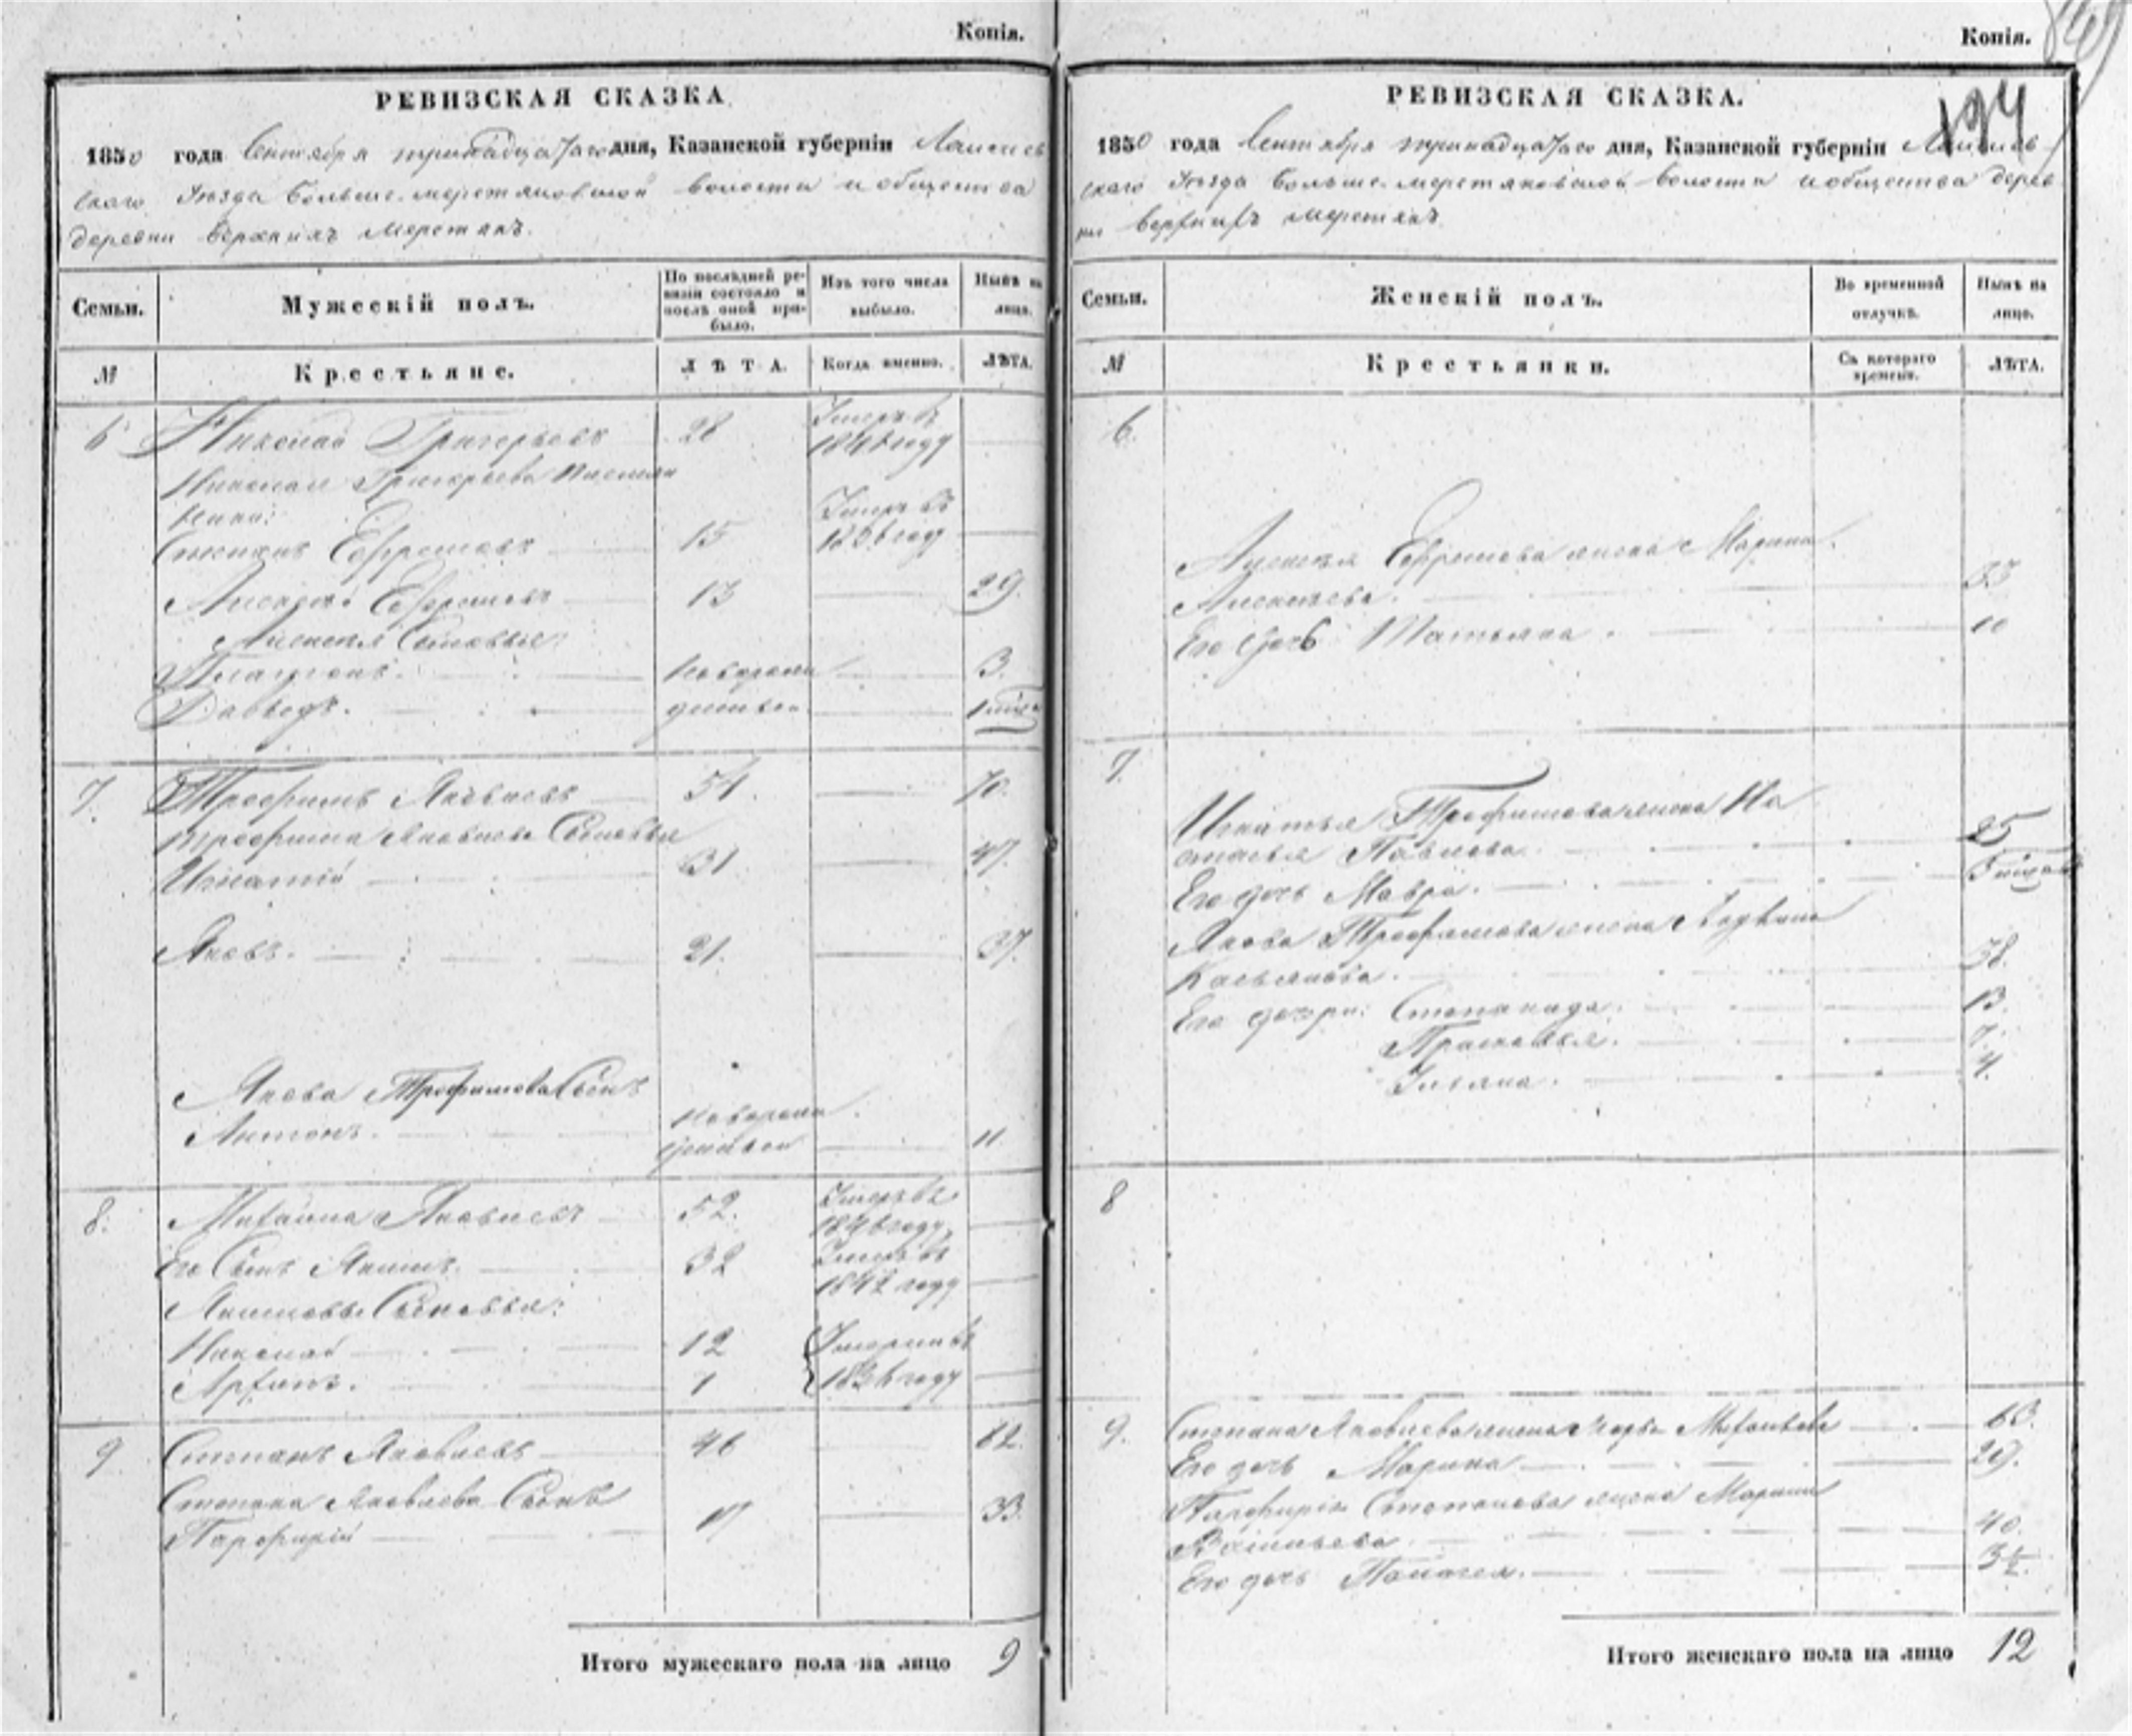 Копія.
РЕВИЗСКАЯ СКАЗКА
1850 года Сентября тринадцатаго дня, Казанской губерніи Лаишев
скаго Уѣзда Больше-меретяковской волости и общества
деревни Верхнихъ Меретякъ.
Семьи. Мужескій полъ. По послѣдней ревизіи состояло и послѣ оной прибыло. Изъ того числа выбыло. Нынѣ на лицо.
№ Крестьяне. ЛѢТА. Когда именно. ЛѢТА.
6 Николай Григорьевъ 28 Умеръ въ
184 году
Николая Григорьева племян
ники:
Степанъ Ефремовъ 15 Умеръ въ
1836 году
Алексѣй Ефремовъ 13 29.
Алексѣя Сыновья:
Платонъ. новорож 3.
Давыдъ. денные 1
7. Трофимъ Яковлевъ 54. 70.
Трофима Яковлева Сыновья
Игнатій 31 47.
Яковъ. 21. 37.
Якова Трофимова Сынъ
Антонъ. новорож
денной 11
8. Михайла Яковлевъ 52. Умеръ въ
1846 году
Его Сынъ Якимъ. 32 Умеръ въ
1842 году
Якимовы Сыновья:
Николай 12 Умерли въ
1836 году
Архипъ. 7
9 Степанъ Яковлевъ 46 62.
Степана Яковлева Сынъ
Парфирій 17 33.
Итого мужескаго пола на лицо 9
Копія.
194
РЕВИЗСКАЯ СКАЗКА.
1850 года Сентября тринадцатаго дня, Казанской губерніи Лаишев
скаго Уѣзда Больше-меретяковской волости и общества дерев
ни Верхнихъ Меретякъ
Семьи. Женскій полъ. Во временной отлучкѣ. Нынѣ на лицо.
№ Крестьянки. Съ котораго времени. ЛѢТА.
6.
Алексѣя Ефремова жена Марина
Алексѣева. 33
Его дочь Татьяна. 10
7.
Игнатья Трофимова жена На
стасья Павлова. 25
Его дочь Мавра.
Якова Трофимова жена
Касьянова. 38.
Его дочери: Степанида. 13.
Прасковья. 7.
Ульяна. 4.
8
9. Степана Яковлева жена Марья Михайлова 63.
Его дочь Марина 29.
Парфирія Степанова жена Марина
Васильева 40.
Его дочь Палагея. 3½
Итого женскаго пола на лицо 12